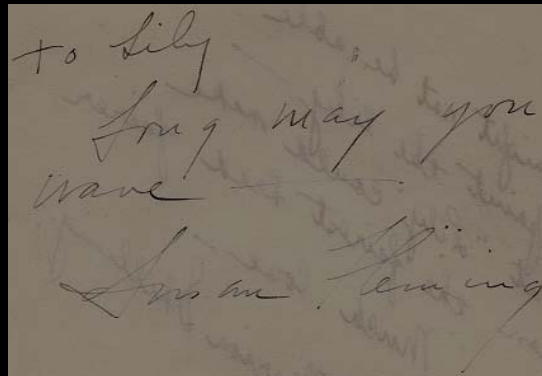 to Lily
Long may you
wave —
Susan Fleming